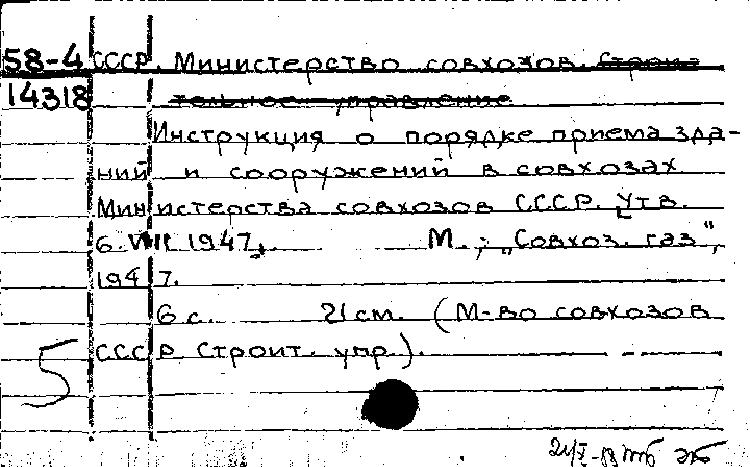 58-4 СССР. Министерство совхозов. Строи-
14318 тельное управление
Инструкция о порядке приема зда-
ний и сооружений в совхозах
Министерства совхозов СССР. Утв.
6.VIII 1947. М., „Совхоз. газ“,
1947.
6 с. 21 см. (М-во совхозов
СССР. Строит. упр.).
5